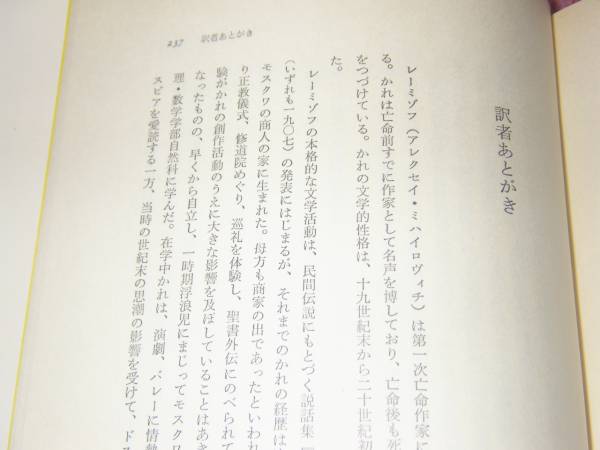 訳者あとがき
レーミゾフ（アレクセイ・ミハイロヴィチ）は第一次亡命作家に
る。かれは亡命前すでに作家として名声を博しており、亡命後も死
をつづけている。かれの文学的性格は、十九世紀末から二十世紀初
た。
レーミゾフの本格的な文学活動は、民間伝説にもとづく説話集
（いずれも一九〇七）の発表にはじまるが、それまでのかれの経歴は
モスクワの商人の家に生まれた。母方も商家の出であったといわれ
り正教儀式、修道院めぐり、巡礼を体験し、聖書外伝にのべられて
験がかれの創作活動のうえに大きな影響を及ぼしていることはあき
なったものの、早くから自立し、一時期浮浪児にまじってモスクワ
理・数学学部自然科に学んだ。在学中かれは、演劇、バレーに情熱
スピアを愛読する一方、当時の世紀末の思潮の影響を受けて、ドス
237 訳者あとがき